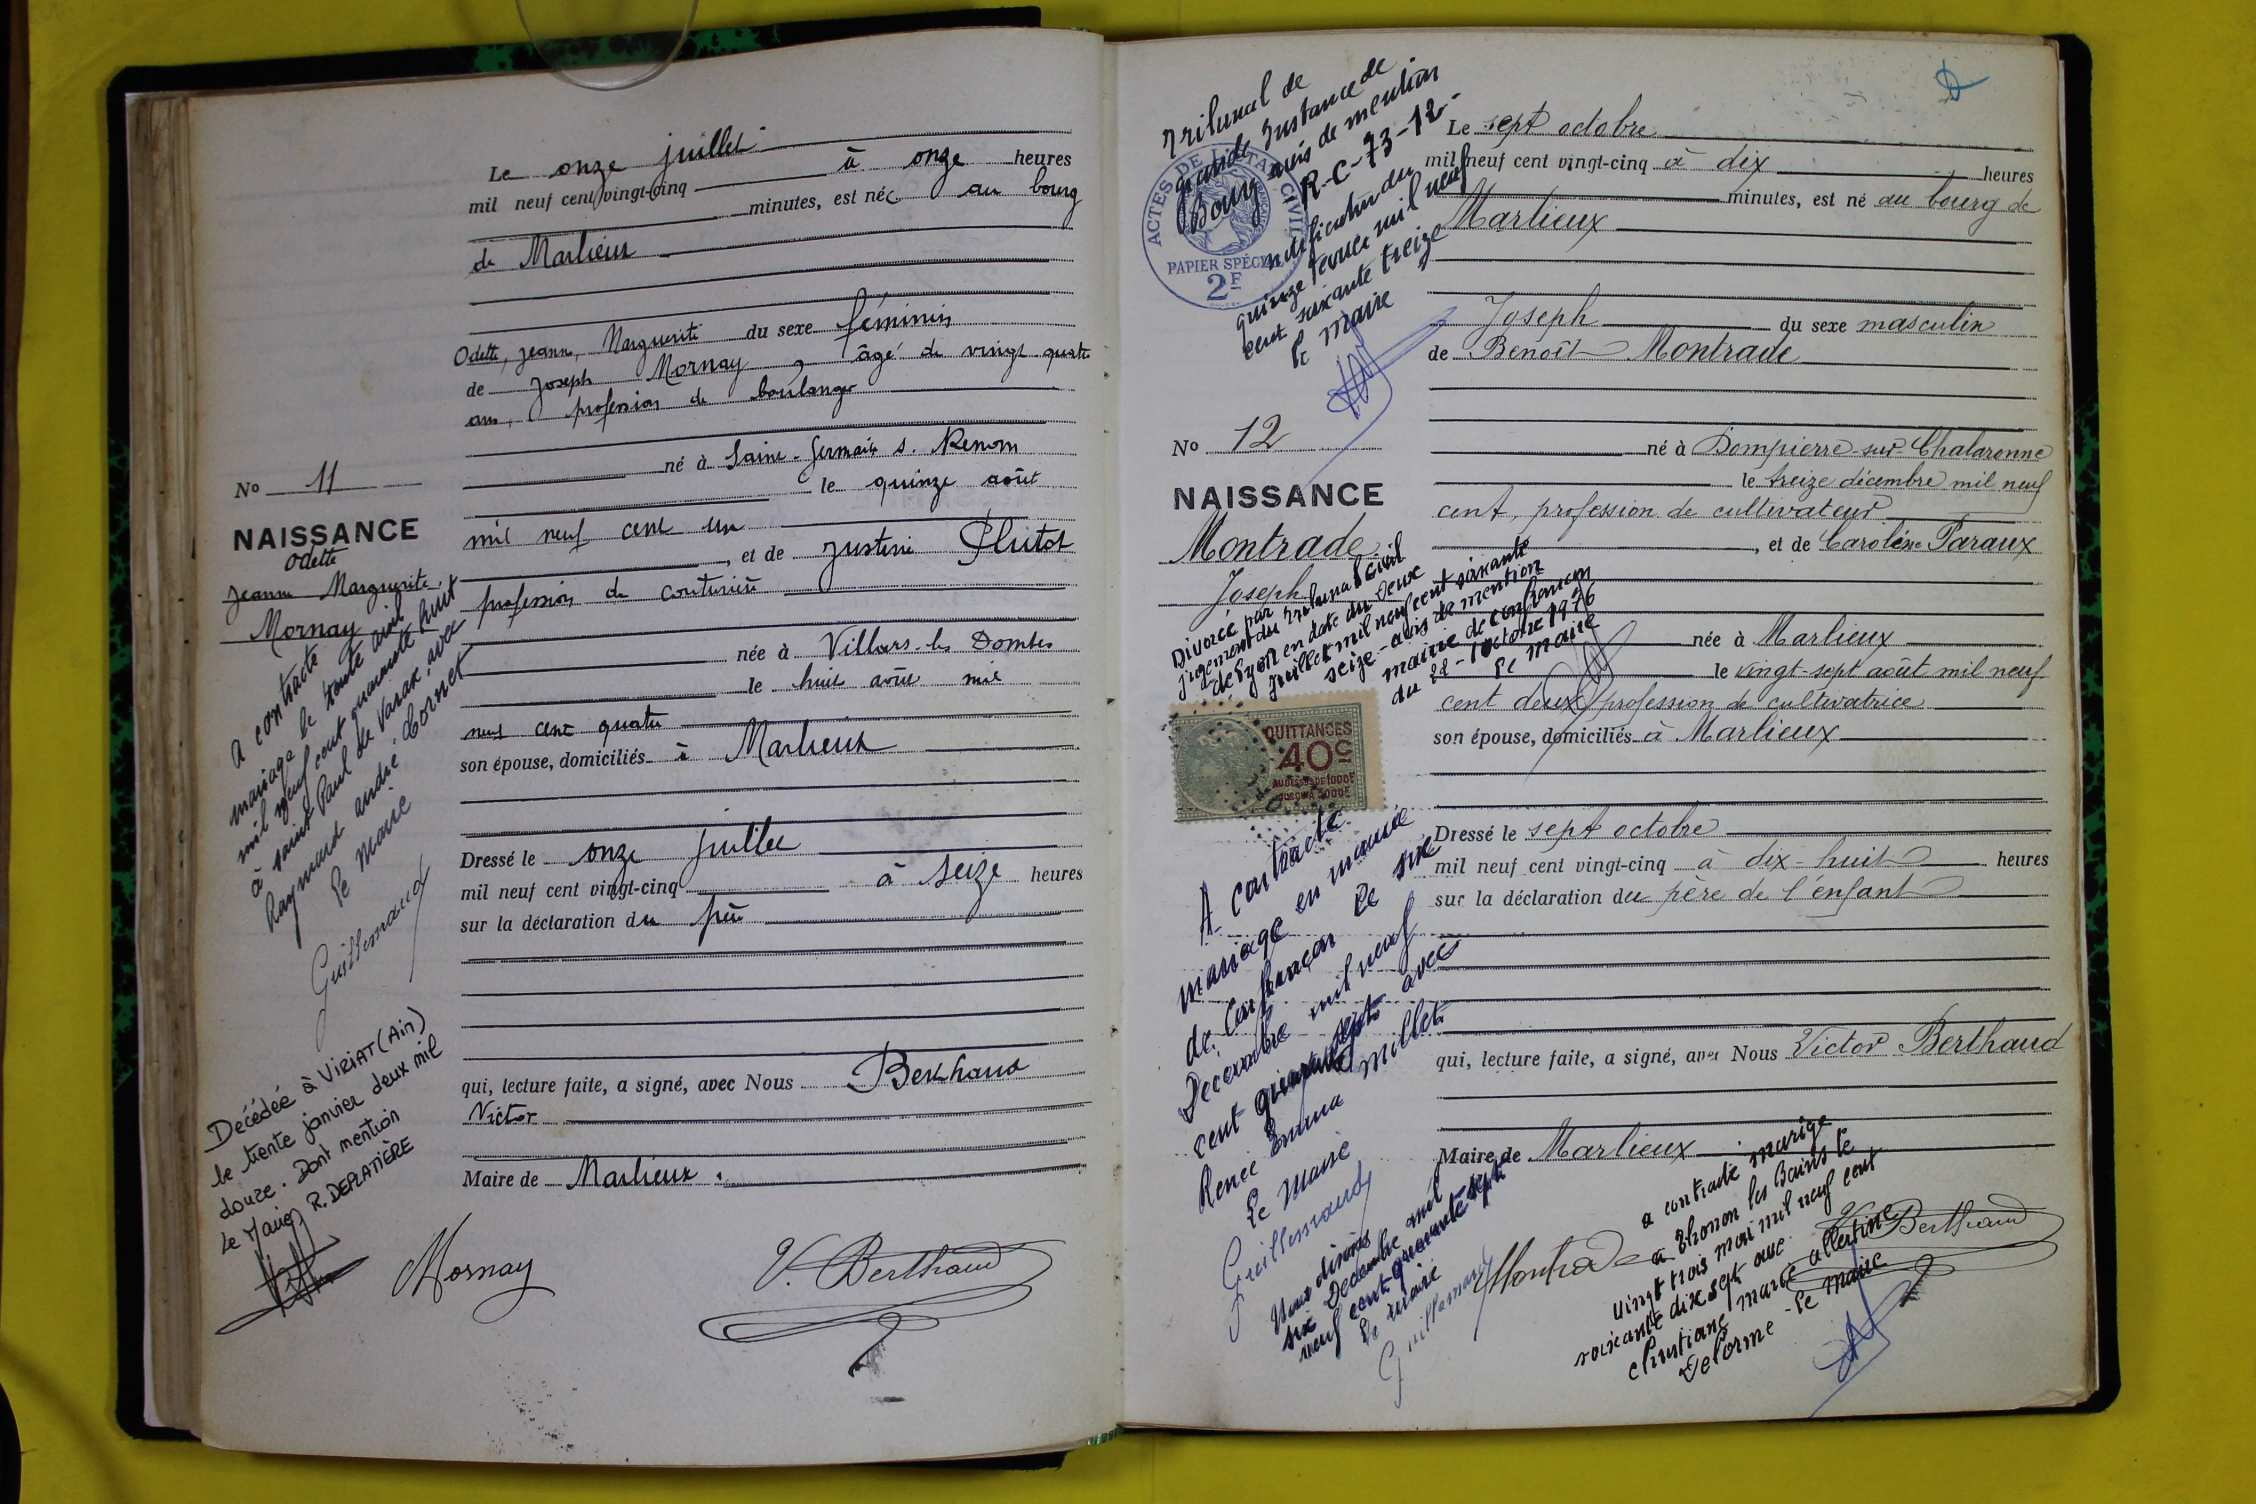 Le onze juillet
mil neuf cent vingt-cinq à onze heures
minutes, est née au bourg
de Marlieux
Odette, Jeanne, Marguerite du sexe féminin
de Joseph Mornay, âgé de vingt quatre
ans, profession de boulanger
né à Saint-Germain s. Renom
le quinze août
mil neuf cent un
, et de Justine Plutot
profession de couturière
née à Villars-les Dombes
le huit août mil
neuf cent quatre
son épouse, domiciliés à Marlieux
Dressé le onze juillet
mil neuf cent vingt-cinq à seize heures
sur la déclaration du père
qui, lecture faite, a signé, avec Nous Berthaud
Victor
Maire de Marlieux.
Mornay
V. Berthaud
No 11
NAISSANCE
Odette
Jeanne Marguerite
Mornay
a contracté
mariage le trente avril
mil neuf cent quarante huit
à Saint Paul de Varax, avec
Raymond andré Cornet
le Maire
Guillemaud
Décédée à VIRIAT (Ain)
le trente janvier deux mil
douze. Dont mention
Le Maire, R. DEPLATIÈRE
Tribunal de
grande Instance de
Bourg avis de mention
R-C-73-12-
notification du
quinze février mil neuf
cent soixante treize
le maire
ACTES DE L'ETAT CIVIL
PAPIER SPÉCIAL
2F
No 12
NAISSANCE
Montrade
Joseph
Divorcé par
jugement du Tribunal Civil
de Lyon en date du deux
juillet mil neuf cent soixante
seize - avis de mention
mairie de confrançon
du 22 - octobre 1976
le maire
QUITTANCES
40c
AU DESSUS DE 1000F
JUSQU'A 3000F
A contracté
mariage en mairie
de Confrançon le six
Décembre mil neuf
cent quarante sept avec
Renée Emma Millet
le Maire
Guillemaud
six Décembre mil
neuf cent quarante sept
le maire
Guillemaud
Le sept octobre
mil neuf cent vingt-cinq à dix heures
minutes, est né au bourg de
Marlieux
Joseph du sexe masculin
de Benoît Montrade
né à Dompierre-sur-Chalaronne
le treize décembre mil neuf
cent, profession de cultivateur
, et de Caroline Paraux
née à Marlieux
le vingt-sept août mil neuf
cent deux, profession de cultivatrice
son épouse, domiciliés à Marlieux
Dressé le sept octobre
mil neuf cent vingt-cinq à dix-huit heures
sur la déclaration du père de l'enfant
qui, lecture faite, a signé, avec Nous Victor Berthaud
Maire de Marlieux
Montrade
V. Berthaud
a contracté mariage
a Thonon les Bains le
vingt trois mai mil neuf cent
soixante dix sept avec
christiane marce albertine
Delorme - le maire